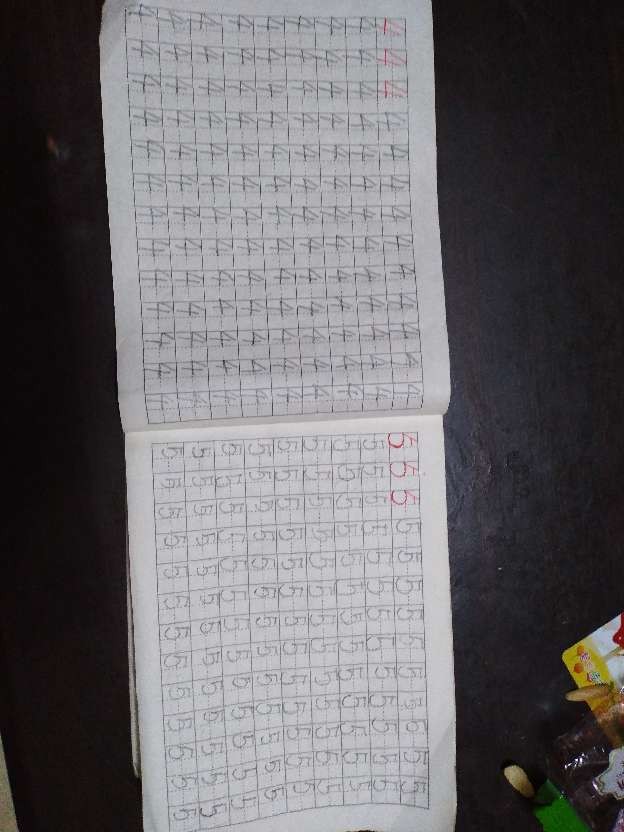 4 4 4 4 4 4 4 4 4 4 4 4 4
4 4 4 4 4 4 4 4 4 4 4 4 4
4 4 4 4 4 4 4 4 4 4 4 4 4
4 4 4 4 4 4 4 4 4 4 4 4 4
4 4 4 4 4 4 4 4 4 4 4 4 4
4 4 4 4 4 4 4 4 4 4 4 4 4
4 4 4 4 4 4 4 4 4 4 4 4 4
4 4 4 4 4 4 4 4 4 4 4 4 4
4 4 4 4 4 4 4 4 4 4 4 4 4
5 5 5 5 5 5 5 5 5 5 5 5 5
5 5 5 5 5 5 5 5 5 5 5 5 5
5 5 5 5 5 5 5 5 5 5 5 5 5
5 5 5 5 5 5 5 5 5 5 5 5 5
5 5 5 5 5 5 5 5 5 5 5 5 5
5 5 5 5 5 5 5 5 5 5 5 5 5
5 5 5 5 5 5 5 5 5 5 5 5 5
5 5 5 5 5 5 5 5 5 5 5 5 5
5 5 5 5 5 5 5 5 5 5 5 5 5